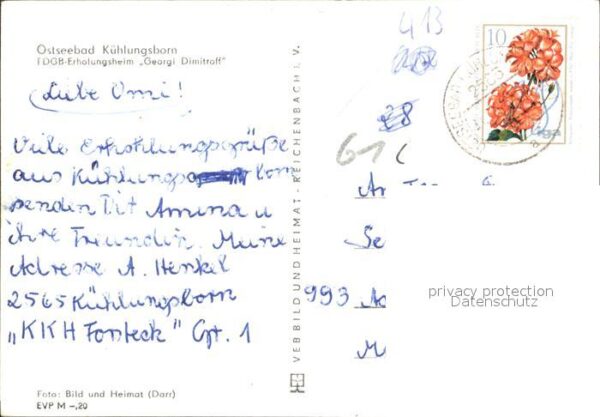 Ostseebad Kühlungsborn
FDGB-Erholungsheim „Georgi Dimitroff"
Liebe Omi!
Viele Erhohlungsgrüße
aus Kühlungsborn
senden Dit Amina u
ihre Freundin. Meine
Adresse A. Henkel
2565 Kühlungsborn
„KKH Fonteck" Gr. 1
Foto: Bild und Heimat (Darr)
EVP M -,20
VEB BILD UND HEIMAT · REICHENBACH I. V.
413
28
61
10
An
Se
993 Ad
M
privacy protection
Datenschutz